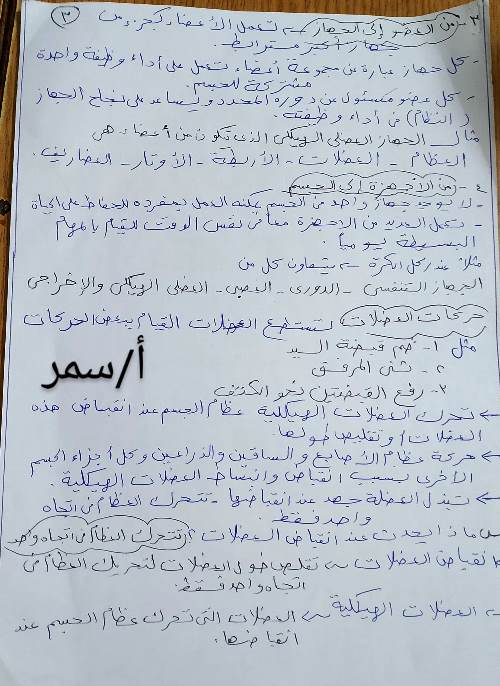 ٣- من العضو إلى الجهاز ← تعمل الأعضاء كجزء من
٣
جهاز أكبر مترابط.
- كل جهاز عبارة عن مجموعة أعضاء تعمل على أداء وظيفة واحدة
مشتركة للجسم.
- كل عضو مسئول عن دوره المحدد ويساعد على نجاح الجهاز
(النظام) في أداء وظيفته.
مثال الجهاز العضلي الهيكلي الذي تكون من أعضاء هي
العظام - العضلات - الأربطة - الأوتار - الغضاريف.
٤- من الأجهزة إلى الجسم
- لا يوجد جهاز واحد من الجسم يمكنه العمل بمفرده للحفاظ على الحياة
- تعمل العديد من الأجهزة معاً في نفس الوقت للقيام بالمهام
البسيطة يومياً.
مثلا عند ركل الكرة ← يتعاون كل من
الجهاز التنفسي - الدوري - العصبي - العضلي الهيكلي والإخراجي
حركات العضلات تستطيع العضلات القيام ببعض الحركات
مثل ١- ضم قبضة اليد
٢- ثني المرفق
أ/سمر
٣- رفع القبضتين نحو الكتف
← تحرك العضلات الهيكلية عظام الجسم عند انقباض هذه
العضلات وتقليص طولها.
← حركة عظام الأصابع والساقين والذراعين وكل أجزاء الجسم
الأخرى بسبب انقباض وانبساط العضلات الهيكلية.
← تبذل العضلة جهد عند انقباضها - تتحرك العظام في اتجاه
واحد فقط.
س ماذا يحدث عند انقباض العضلات؟ تتحرك العظام في اتجاه واحد
انقباض العضلات ← تقليص طول العضلات لتحريك العظام في
اتجاه واحد فقط.
العضلات الهيكلية ← العضلات التي تحرك عظام الجسم عند
انقباضها.